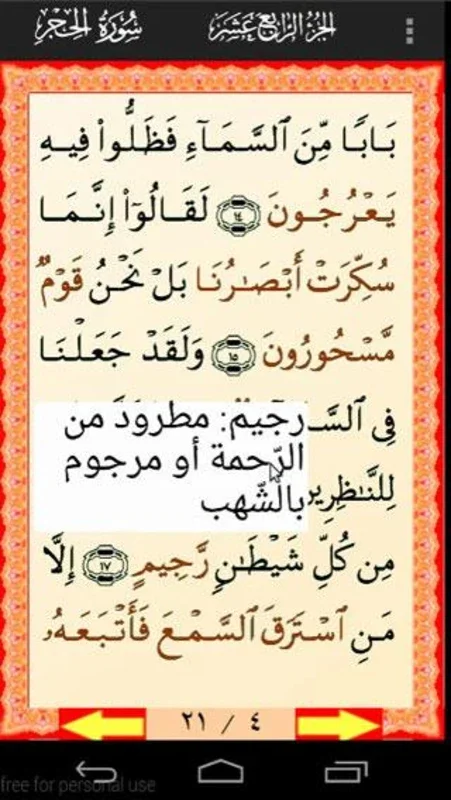 سُورَةُ الحِجْرِ الجُزْءُ الرَّابِعَ عَشَرَ
بَابًا مِّنَ ٱلسَّمَآءِ فَظَلُّوا۟ فِيهِ
يَعْرُجُونَ ١٤ لَقَالُوٓا۟ إِنَّمَا
سُكِّرَتْ أَبْصَـٰرُنَا بَلْ نَحْنُ قَوْمٌ
مَّسْحُورُونَ ١٥ وَلَقَدْ جَعَلْنَا
فِى ٱلسَّـ
رجيم: مطرودَ من
الرّحمة أو مرجوم
بالشّهب
لِلنَّـٰظِرِينَ
مِن كُلِّ شَيْطَـٰنٍ رَّجِيمٍ ١٧ إِلَّا
مَنِ ٱسْتَرَقَ ٱلسَّمْعَ فَأَتْبَعَهُۥ
٢١ / ٤
free for personal use